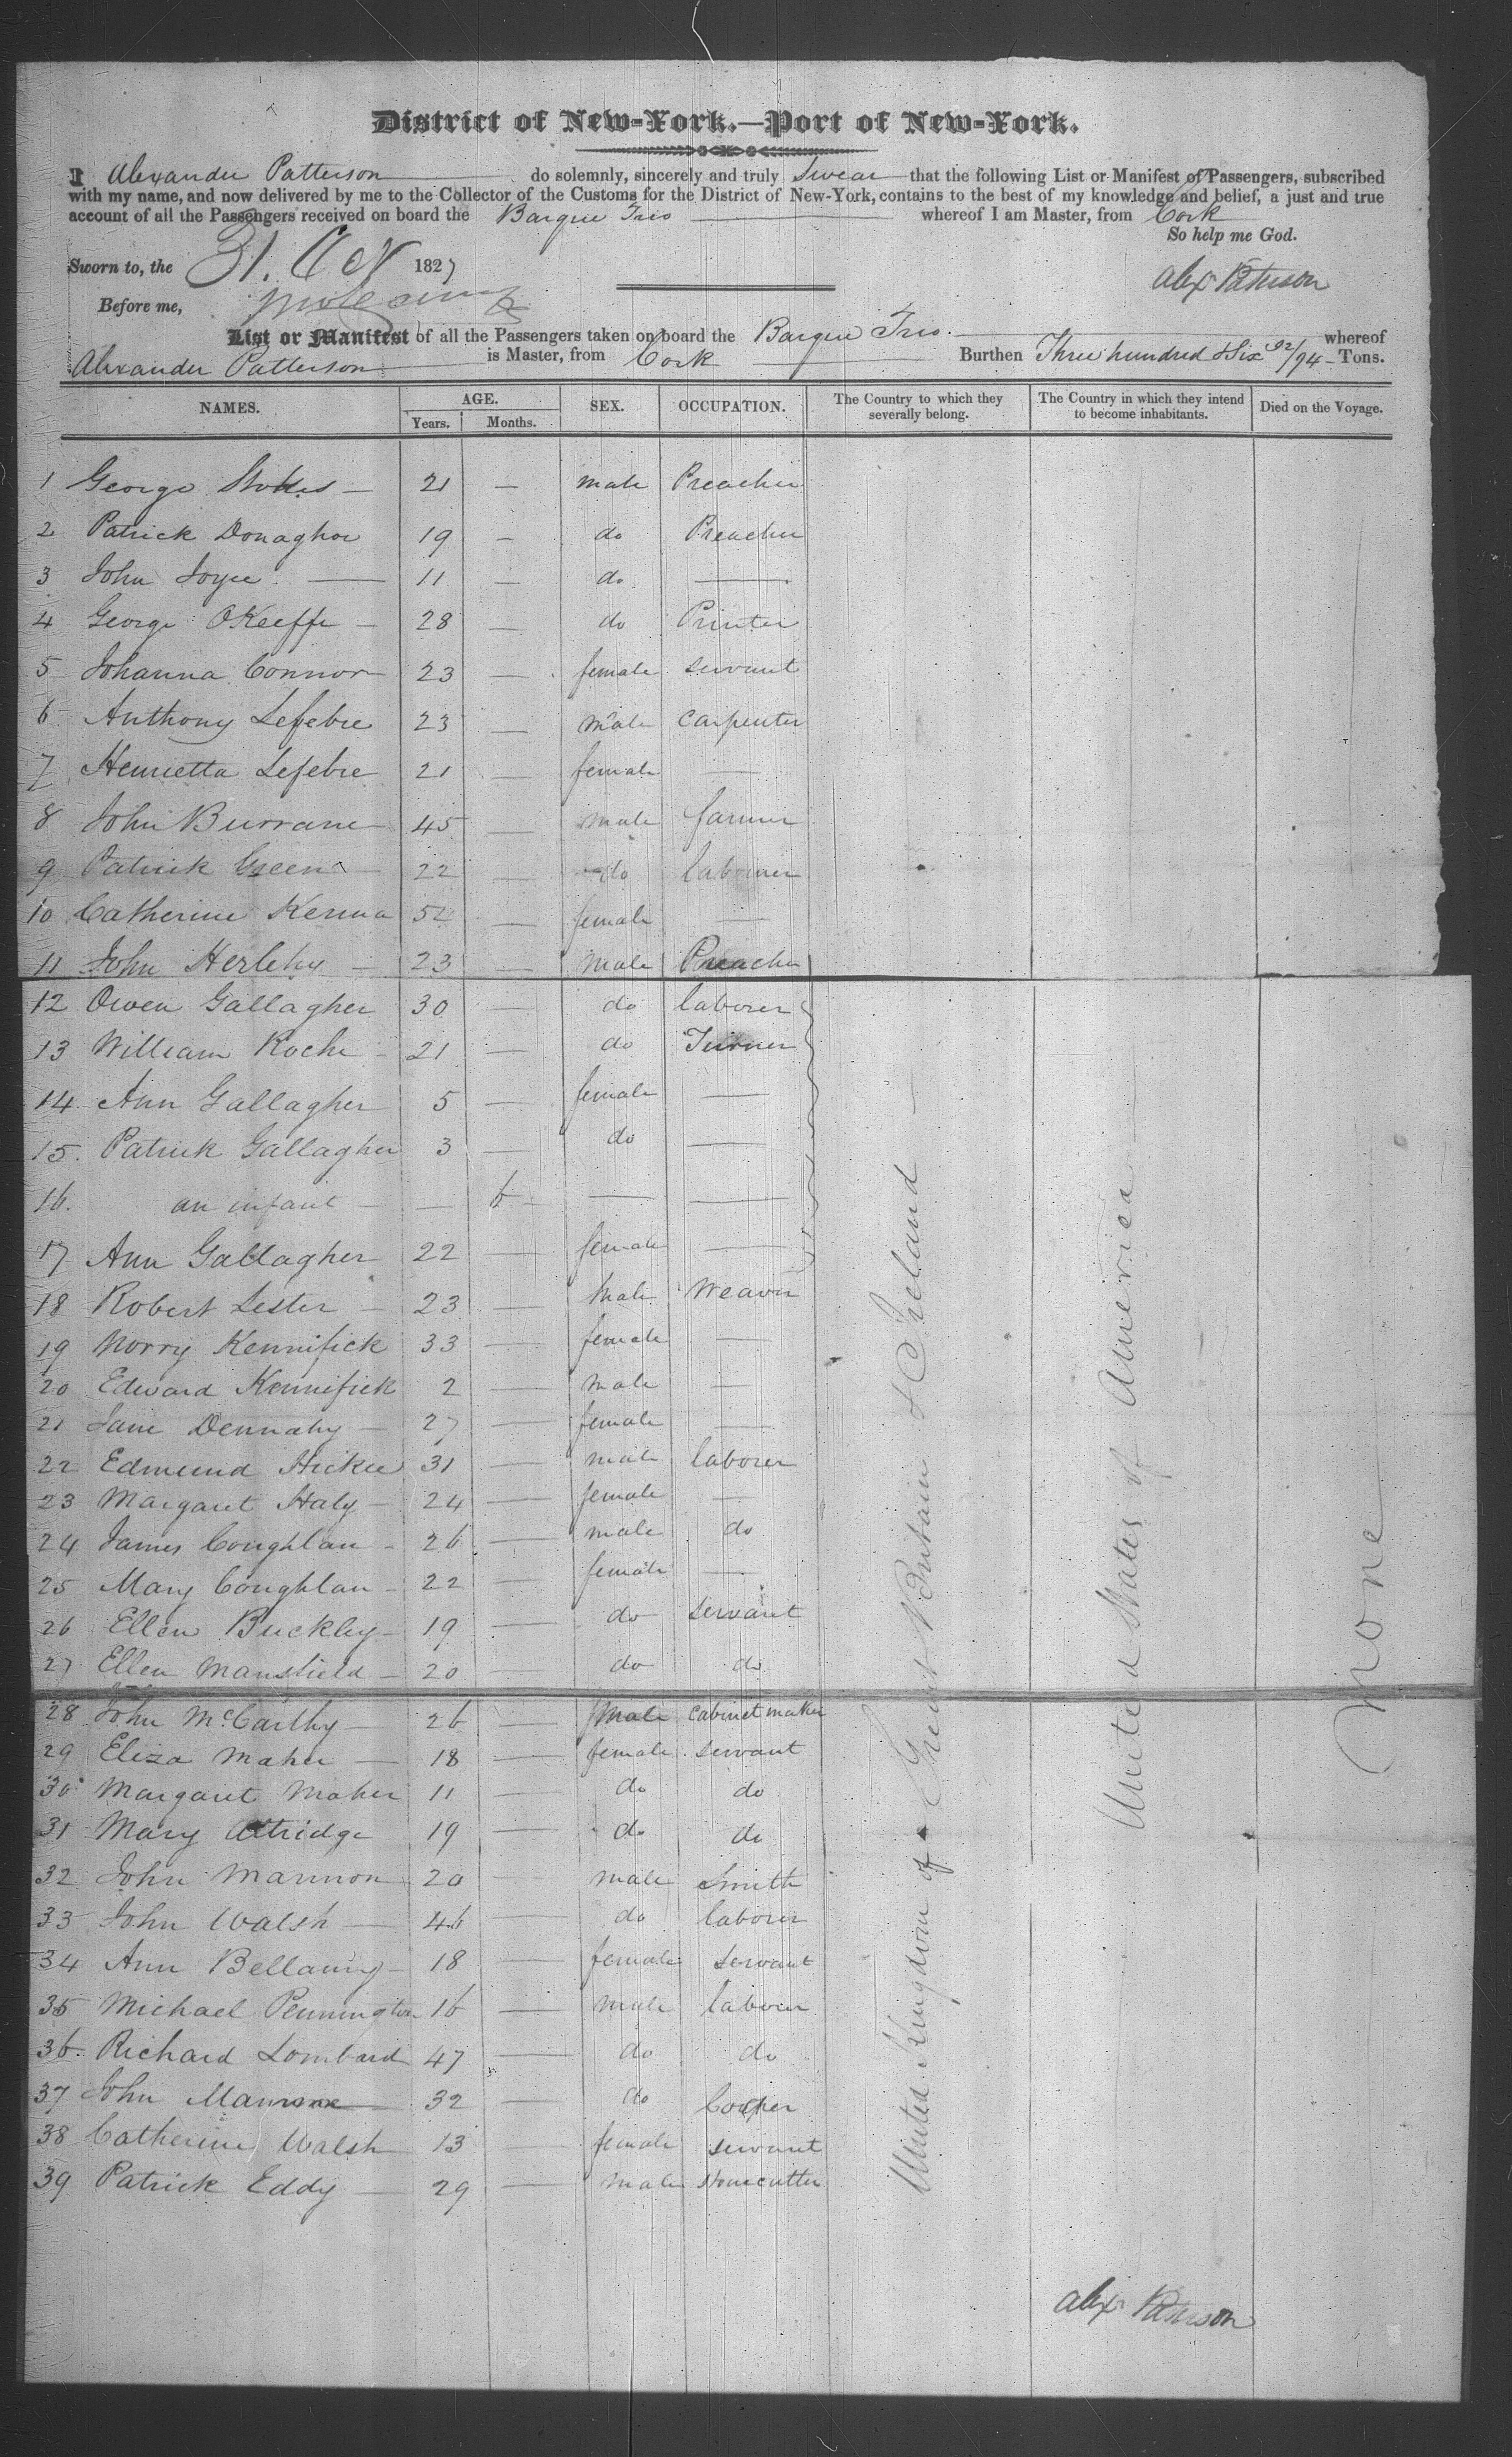 District of New-York.—Port of New-York.
I Alexander Patterson do solemnly, sincerely and truly Swear that the following List or Manifest of Passengers, subscribed
with my name, and now delivered by me to the Collector of the Customs for the District of New-York, contains to the best of my knowledge and belief, a just and true
account of all the Passengers received on board the Barque Trio whereof I am Master, from Cork
So help me God.
Sworn to, the 31. Oct 1827
Alexr Paterson
Before me,
List or Manifest of all the Passengers taken on board the Barque Trio. whereof
Alexander Patterson is Master, from Cork Burthen Three hundred & Six 92/94 Tons.
NAMES. AGE. SEX. OCCUPATION. The Country to which they severally belong. The Country in which they intend to become inhabitants. Died on the Voyage.
Years. Months.
1 George Stokes — 21 — male Preacher
2 Patrick Donaghoe 19 — do Preacher
3 John Joyce — 11 — do —
4 George OKeeffe — 28 — do Printer
5 Johanna Connor 23 — female servant
6 Anthony Lefebre 23 — male carpenter
7 Henrietta Lefebre 21 — female —
8 John Burrane 45 — male farmer
9 Patrick Green — 22 — do labourer
10 Catherine Kenna 52 — female —
11 John Herlehy — 23 — male Preacher
12 Owen Gallagher 30 — do laborer
13 William Roche — 21 — do Turner
14 Ann Gallagher 5 — female —
15. Patrick Gallagher 3 — do —
16. an infant — — 6 — —
17 Ann Gallagher 22 — female —
18 Robert Lester — 23 — male Weaver
19 Norry Kennifick 33 — female —
20 Edward Kennifick 2 — male —
21 Jane Dennahy — 27 — female —
22 Edmund Hickee 31 — male laborer
23 Margaret Haly — 24 — female —
24 James Coughlan — 26 — male do
25 Mary Coughlan — 22 — female —
26 Ellen Buckley — 19 — do servant
27 Ellen Mansfield — 20 — do do
28 John McCarthy — 26 — male cabinet maker
29 Eliza Maher — 18 — female servant
30 Margaret Maher 11 — do do
31 Mary Attridge 19 — do do
32 John Mannon 20 — male Smith
33 John Walsh — 46 — do laborer
34 Ann Bellamy — 18 — female servant
35 Michael Pennington 16 — male laborer
36. Richard Lombard 47 — do do
37 John — 32 — do Cooper
38 Catherine Walsh 13 — female servant
39 Patrick Eddy — 29 — male Stonecutter
United Kingdom of Great Britain & Ireland —
United States of America
None
Alexr Paterson